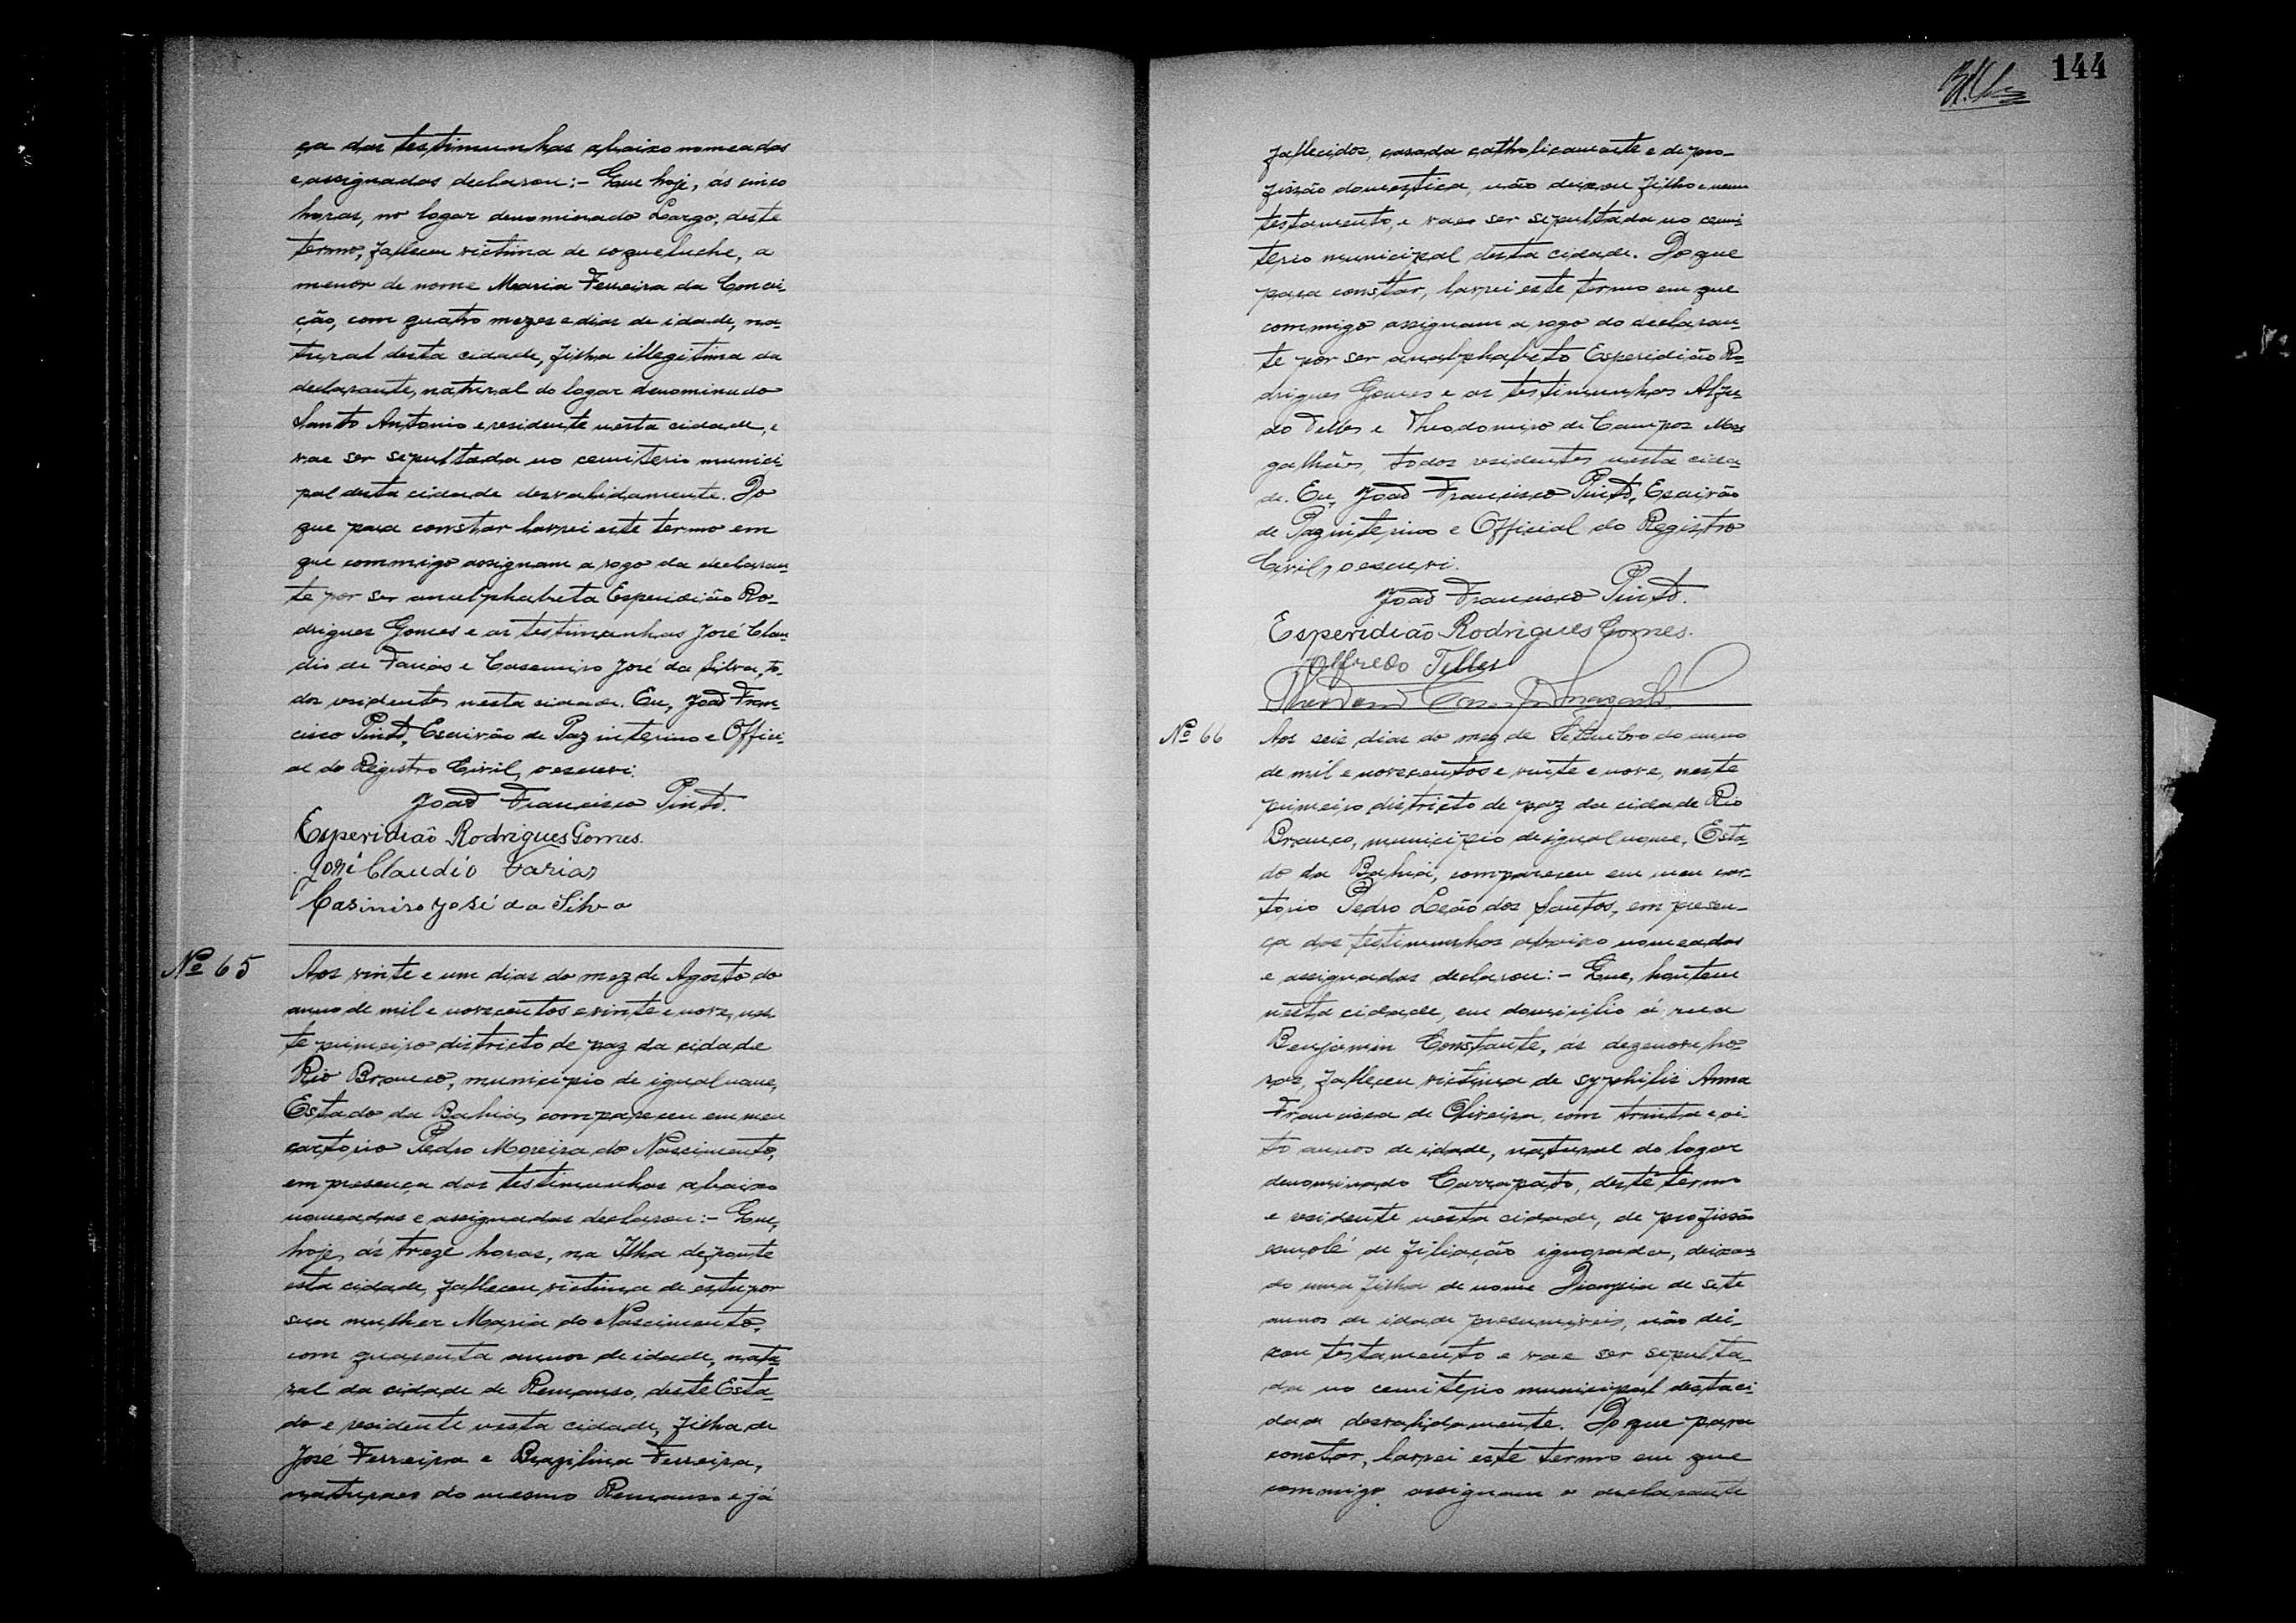 ça das testimunhas abaixo nomeadas
e assignadas declarou:- Que hoje, ás cinco
horas, no logar denominado Largo, deste
termo, falleceu victima de coqueluche, a
menor de nome Maria Ferreira da Concei-
ção, com quatro mezes e dias de idade, na-
tural desta cidade, filha illegitima da
declarante, natural do logar denominado
Santo Antonio e residente nesta cidade, e
vae ser sepultada no cemiterio munici-
pal desta cidade desvalidamente. Do
que para constar lavrei este termo em
que commigo assignam a rogo da declaran-
te por ser analphabeta Esperidião Ro-
drigues Gomes e as testimunhas José Clau-
dio de Farias e Casemiro José da Silva, to-
dos residentes nesta cidade. Eu, João Fran-
cisco Pinto, Escrivão de Paz interino e Offici-
al do Registro Civil, o escrevi.
João Francisco Pinto.
Esperidião Rodrigues Gomes.
José Claudio Farias
Casimiro José da Silva
Nº 65 Aos vinte e um dias do mez de Agosto do
anno de mil e novecentos e vinte e nove, nes-
te primeiro districto de paz da cidade
Rio Branco, municipio de igual nome,
Estado da Bahia, compareceu em meu
cartorio Pedro Moreira do Nascimento,
em presença das testimunhas abaixo
nomeadas e assignadas declarou:- Que,
hoje, ás treze horas, na Ilha defronte
esta cidade, falleceu victima de estupor
sua mulher Maria do Nascimento,
com quarenta annos de idade, natu-
ral da cidade de Remanso, deste Esta-
do e residente nesta cidade, filha de
José Ferreira e Brazilina Ferreira,
naturaes do mesmo Remanso e já
144
fallecidos, casada catholicamente e de pro-
fissão domestica, não deixou filho e nem
testamento, e vae ser sepultada no cemi-
terio municipal desta cidade. Do que
para constar, lavrei este termo em que
commigo assignam a rogo do declaran-
te por ser analphabeto Esperidião Ro-
drigues Gomes e as testimunhas Alfre-
do Telles e Theodomiro de Campos Ma-
galhães, todos residentes nesta cida-
de. Eu, João Francisco Pinto, Escrivão
de Paz interino e Official do Registro
Civil, o escrevi.
João Francisco Pinto.
Esperidião Rodrigues Gomes.
Alfredo Telles
Nº 66 Aos seis dias do mez de Setembro do anno
de mil e novecentos e vinte e nove, neste
primeiro districto de paz da cidade Rio
Branco, municipio de igual nome, Esta-
do da Bahia, compareceu em meu car-
torio Pedro Leão dos Santos, em presen-
ça das testimunhas abaixo nomeadas
e assignadas declarou:- Que, hontem
nesta cidade, em domicilio á rua
Benjamin Constante, as dezenove ho-
ras, falleceu victima de syphilis Anna
Francisca de Oliveira, com trinta e oi-
to annos de idade, natural do logar
denominado Carrapato, deste termo
e residente nesta cidade, de profissão
esmolé de filiação ignorada, deixan-
do uma filha de nome de sete
annos de idade presumiveis, não dei-
xou testamento e vae ser sepulta-
da no cemiterio municipal desta ci-
dade desvalidamente. Do que para
constar, lavrei este termo em que
commigo assignam o declarante